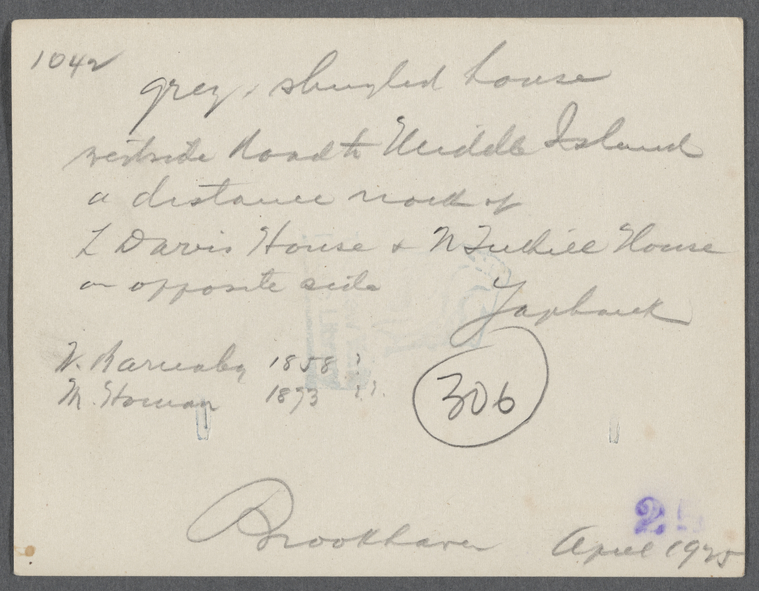 1042
grey, shingled house
westside Road to Middle Island
a distance north of
L Davis House & N Tuthill House
on opposite side
Yaphank
W. Barnaby 1858 ?
M. Homan 1873 ??
306
25
Brookhaven April 1925